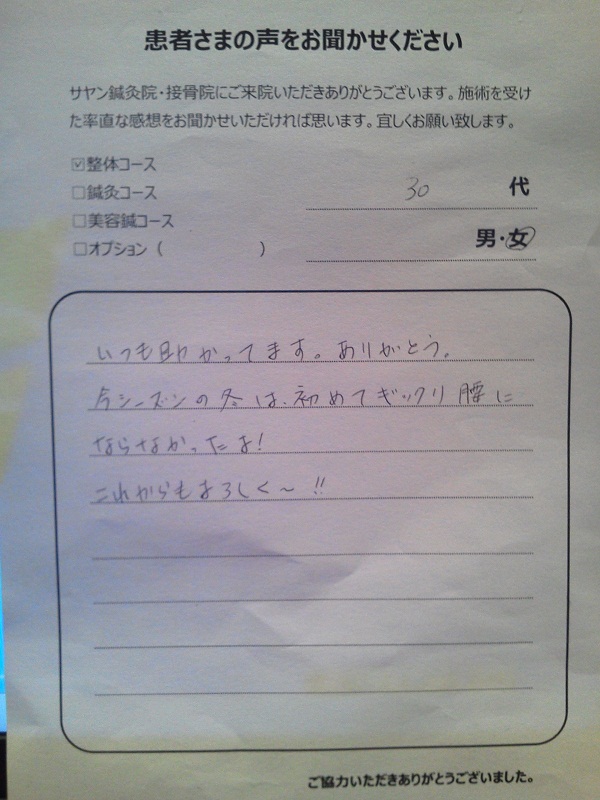 患者さまの声をお聞かせください
サヤン鍼灸院・接骨院にご来院いただきありがとうございます。施術を受け
た率直な感想をお聞かせいただければ思います。宜しくお願い致します。
☑整体コース
□鍼灸コース
30 代
□美容鍼コース
男・女
□オプション（ ）
いつも助かってます。ありがとう。
今シーズンの冬は、初めてギックリ腰に
ならなかったよ!
これからもよろしく〜!!
ご協力いただきありがとうございました。